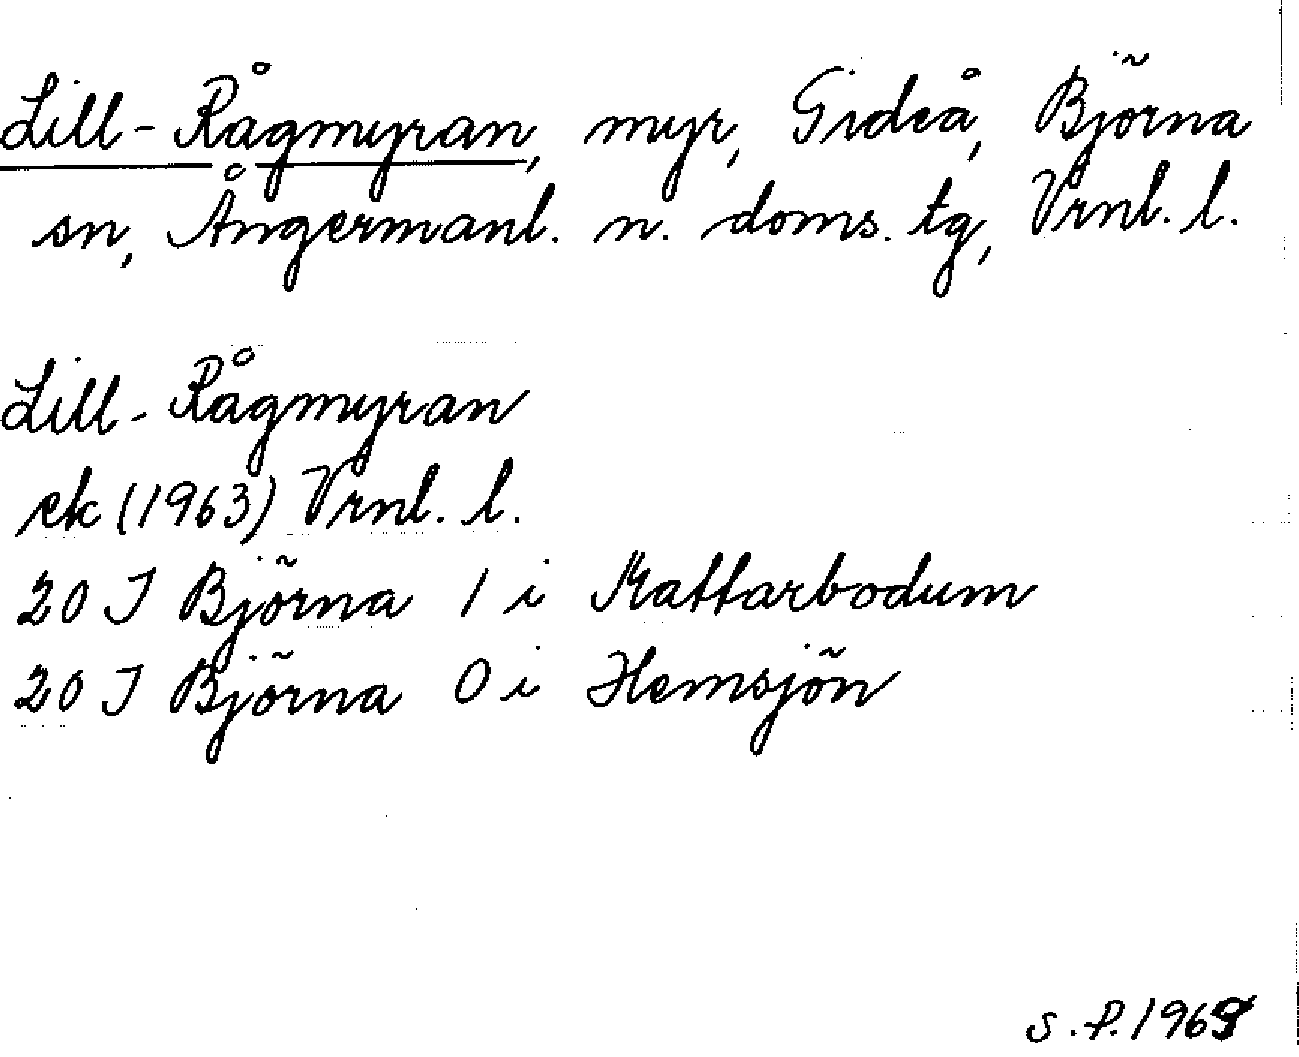 Lill-Rågmyran, myr, Gideå, Björna
sn, Ångermanl. n. doms. tg, Vrnl. l.
Lill-Rågmyran
ek (1963) Vrnl. l.
20 J Björna 1 i Mattarbodum
20 J Björna 0 i Hemsjön
S. P. 1969